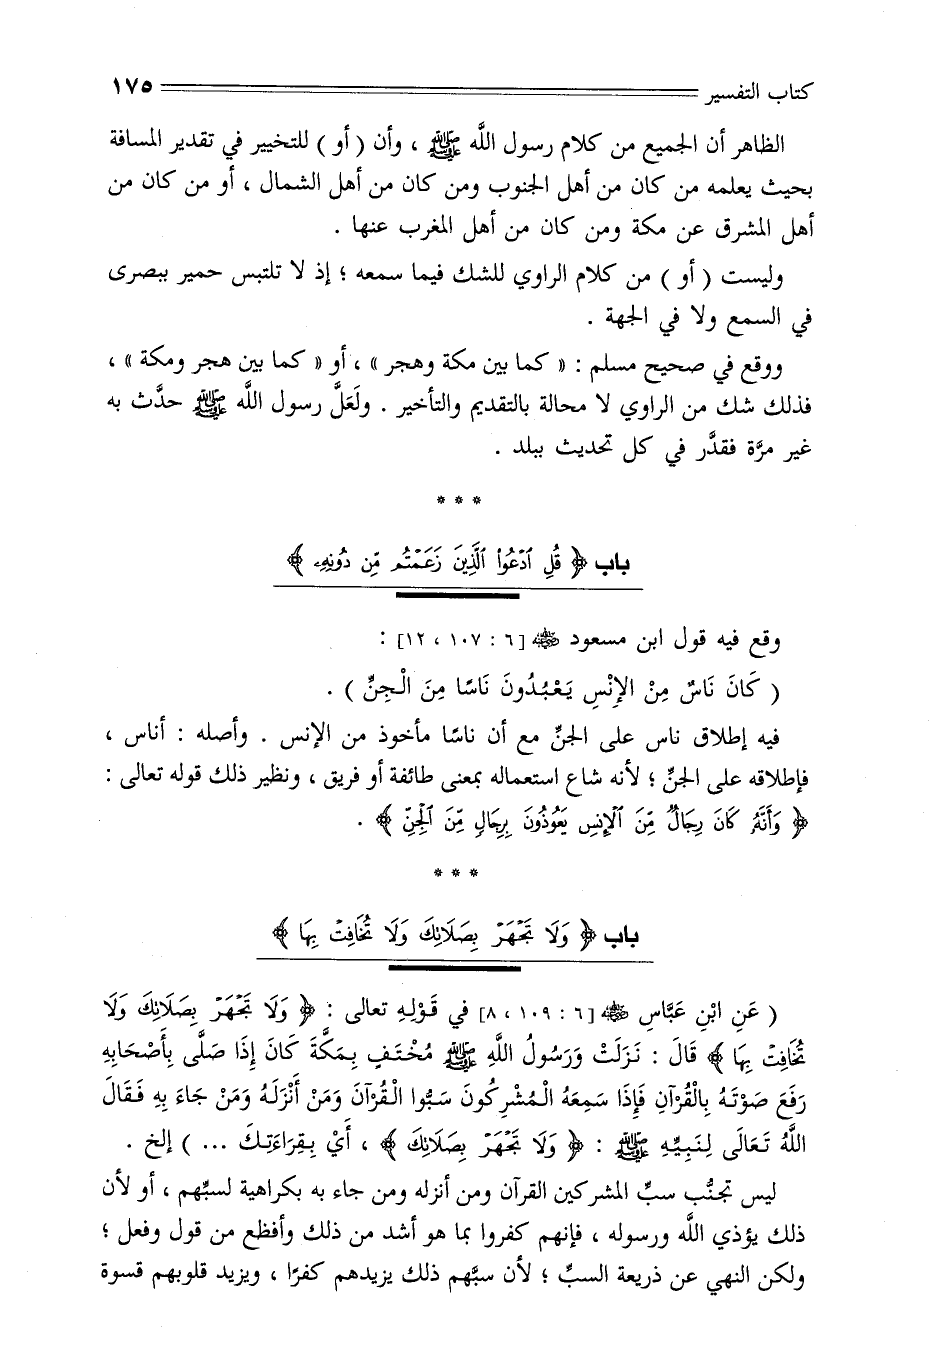 كتاب التفسير ١٧٥
الظاهر أن الجميع من كلام رسول اللَّه ﷺ ، وأن ( أو ) للتخيير في تقدير المسافة
بحيث يعلمه من كان من أهل الجنوب ومن كان من أهل الشمال ، أو من كان من
أهل المشرق عن مكة ومن كان من أهل المغرب عنها .
وليست ( أو ) من كلام الراوي للشك فيما سمعه ؛ إذ لا تلتبس حمير ببصرى
في السمع ولا في الجهة .
ووقع في صحيح مسلم : « كما بين مكة وهجر » ، أو « كما بين هجر ومكة » ،
فذلك شك من الراوي لا محالة بالتقديم والتأخير . ولَعَلَّ رسول اللَّه ﷺ حدَّث به
غير مرَّة فقدَّر في كل تحديث ببلد .
* * *
باب ﴿ قُلِ ٱدْعُوا۟ ٱلَّذِينَ زَعَمْتُم مِّن دُونِهِۦ ﴾
وقع فيه قول ابن مسعود ﷺ [٦ : ١٠٧ ، ١٢] :
( كَانَ نَاسٌ مِنْ الإِنْسِ يَعْبُدُونَ نَاسًا مِنَ الْجِنِّ ) .
فيه إطلاق ناس على الجنِّ مع أن ناسًا مأخوذ من الإنس . وأصله : أناس ،
فإطلاقه على الجنِّ ؛ لأنه شاع استعماله بمعنى طائفة أو فريق ، ونظير ذلك قوله تعالى :
﴿ وَأَنَّهُۥ كَانَ رِجَالٌ مِّنَ ٱلْإِنسِ يَعُوذُونَ بِرِجَالٍ مِّنَ ٱلْجِنِّ ﴾ .
* * *
باب ﴿ وَلَا تَجْهَرْ بِصَلَاتِكَ وَلَا تُخَافِتْ بِهَا ﴾
( عَنِ ابْنِ عَبَّاسِ ﷺ [٦ : ١٠٩ ، ٨] في قَوْلِهِ تعالى : ﴿ وَلَا تَجْهَرْ بِصَلَاتِكَ وَلَا
تُخَافِتْ بِهَا ﴾ قَالَ : نَزَلَتْ وَرَسُولُ اللَّهِ ﷺ مُخْتَفٍ بِمَكَّةَ كَانَ إِذَا صَلَّى بِأَصْحَابِهِ
رَفَعَ صَوْتَهُ بِالْقُرْآنِ فَإِذَا سَمِعَهُ الْمُشْرِكُونَ سَبُّوا الْقُرْآنَ وَمَنْ أَنْزَلَهُ وَمَنْ جَاءَ بِهِ فَقَالَ
اللَّهُ تَعَالَى لِنَبِيِّهِ ﷺ : ﴿ وَلَا تَجْهَرْ بِصَلَاتِكَ ﴾ ، أَيْ بِقِرَاءَتِكَ ... ) إلخ .
ليس تجنُّب سبِّ المشركين القرآن ومن أنزله ومن جاء به بكراهية لسبِّهم ، أو لأن
ذلك يؤذي اللَّه ورسوله ، فإنهم كفروا بما هو أشد من ذلك وأفظع من قول وفعل ؛
ولكن النهي عن ذريعة السبِّ ؛ لأن سبَّهم ذلك يزيدهم كفرًا ، ويزيد قلوبهم قسوة